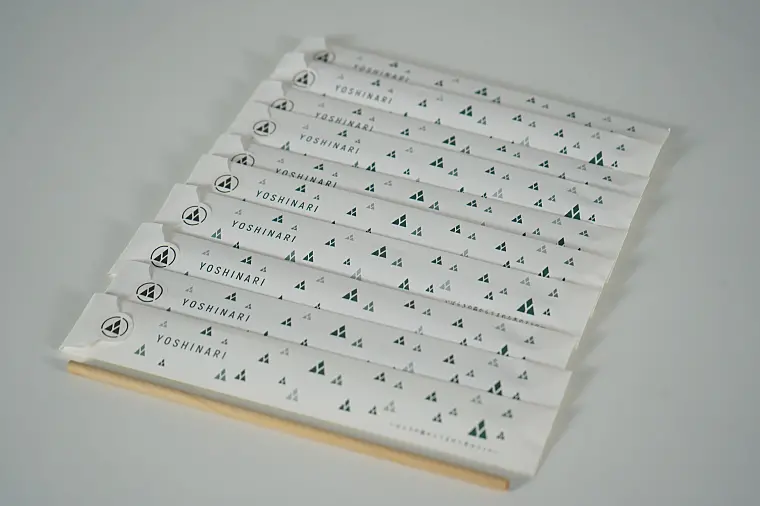 YOSHINARI
YOSHINARI
YOSHINARI
YOSHINARI
YOSHINARI
YOSHINARI
YOSHINARI
YOSHINARI
YOSHINARI
YOSHINARI